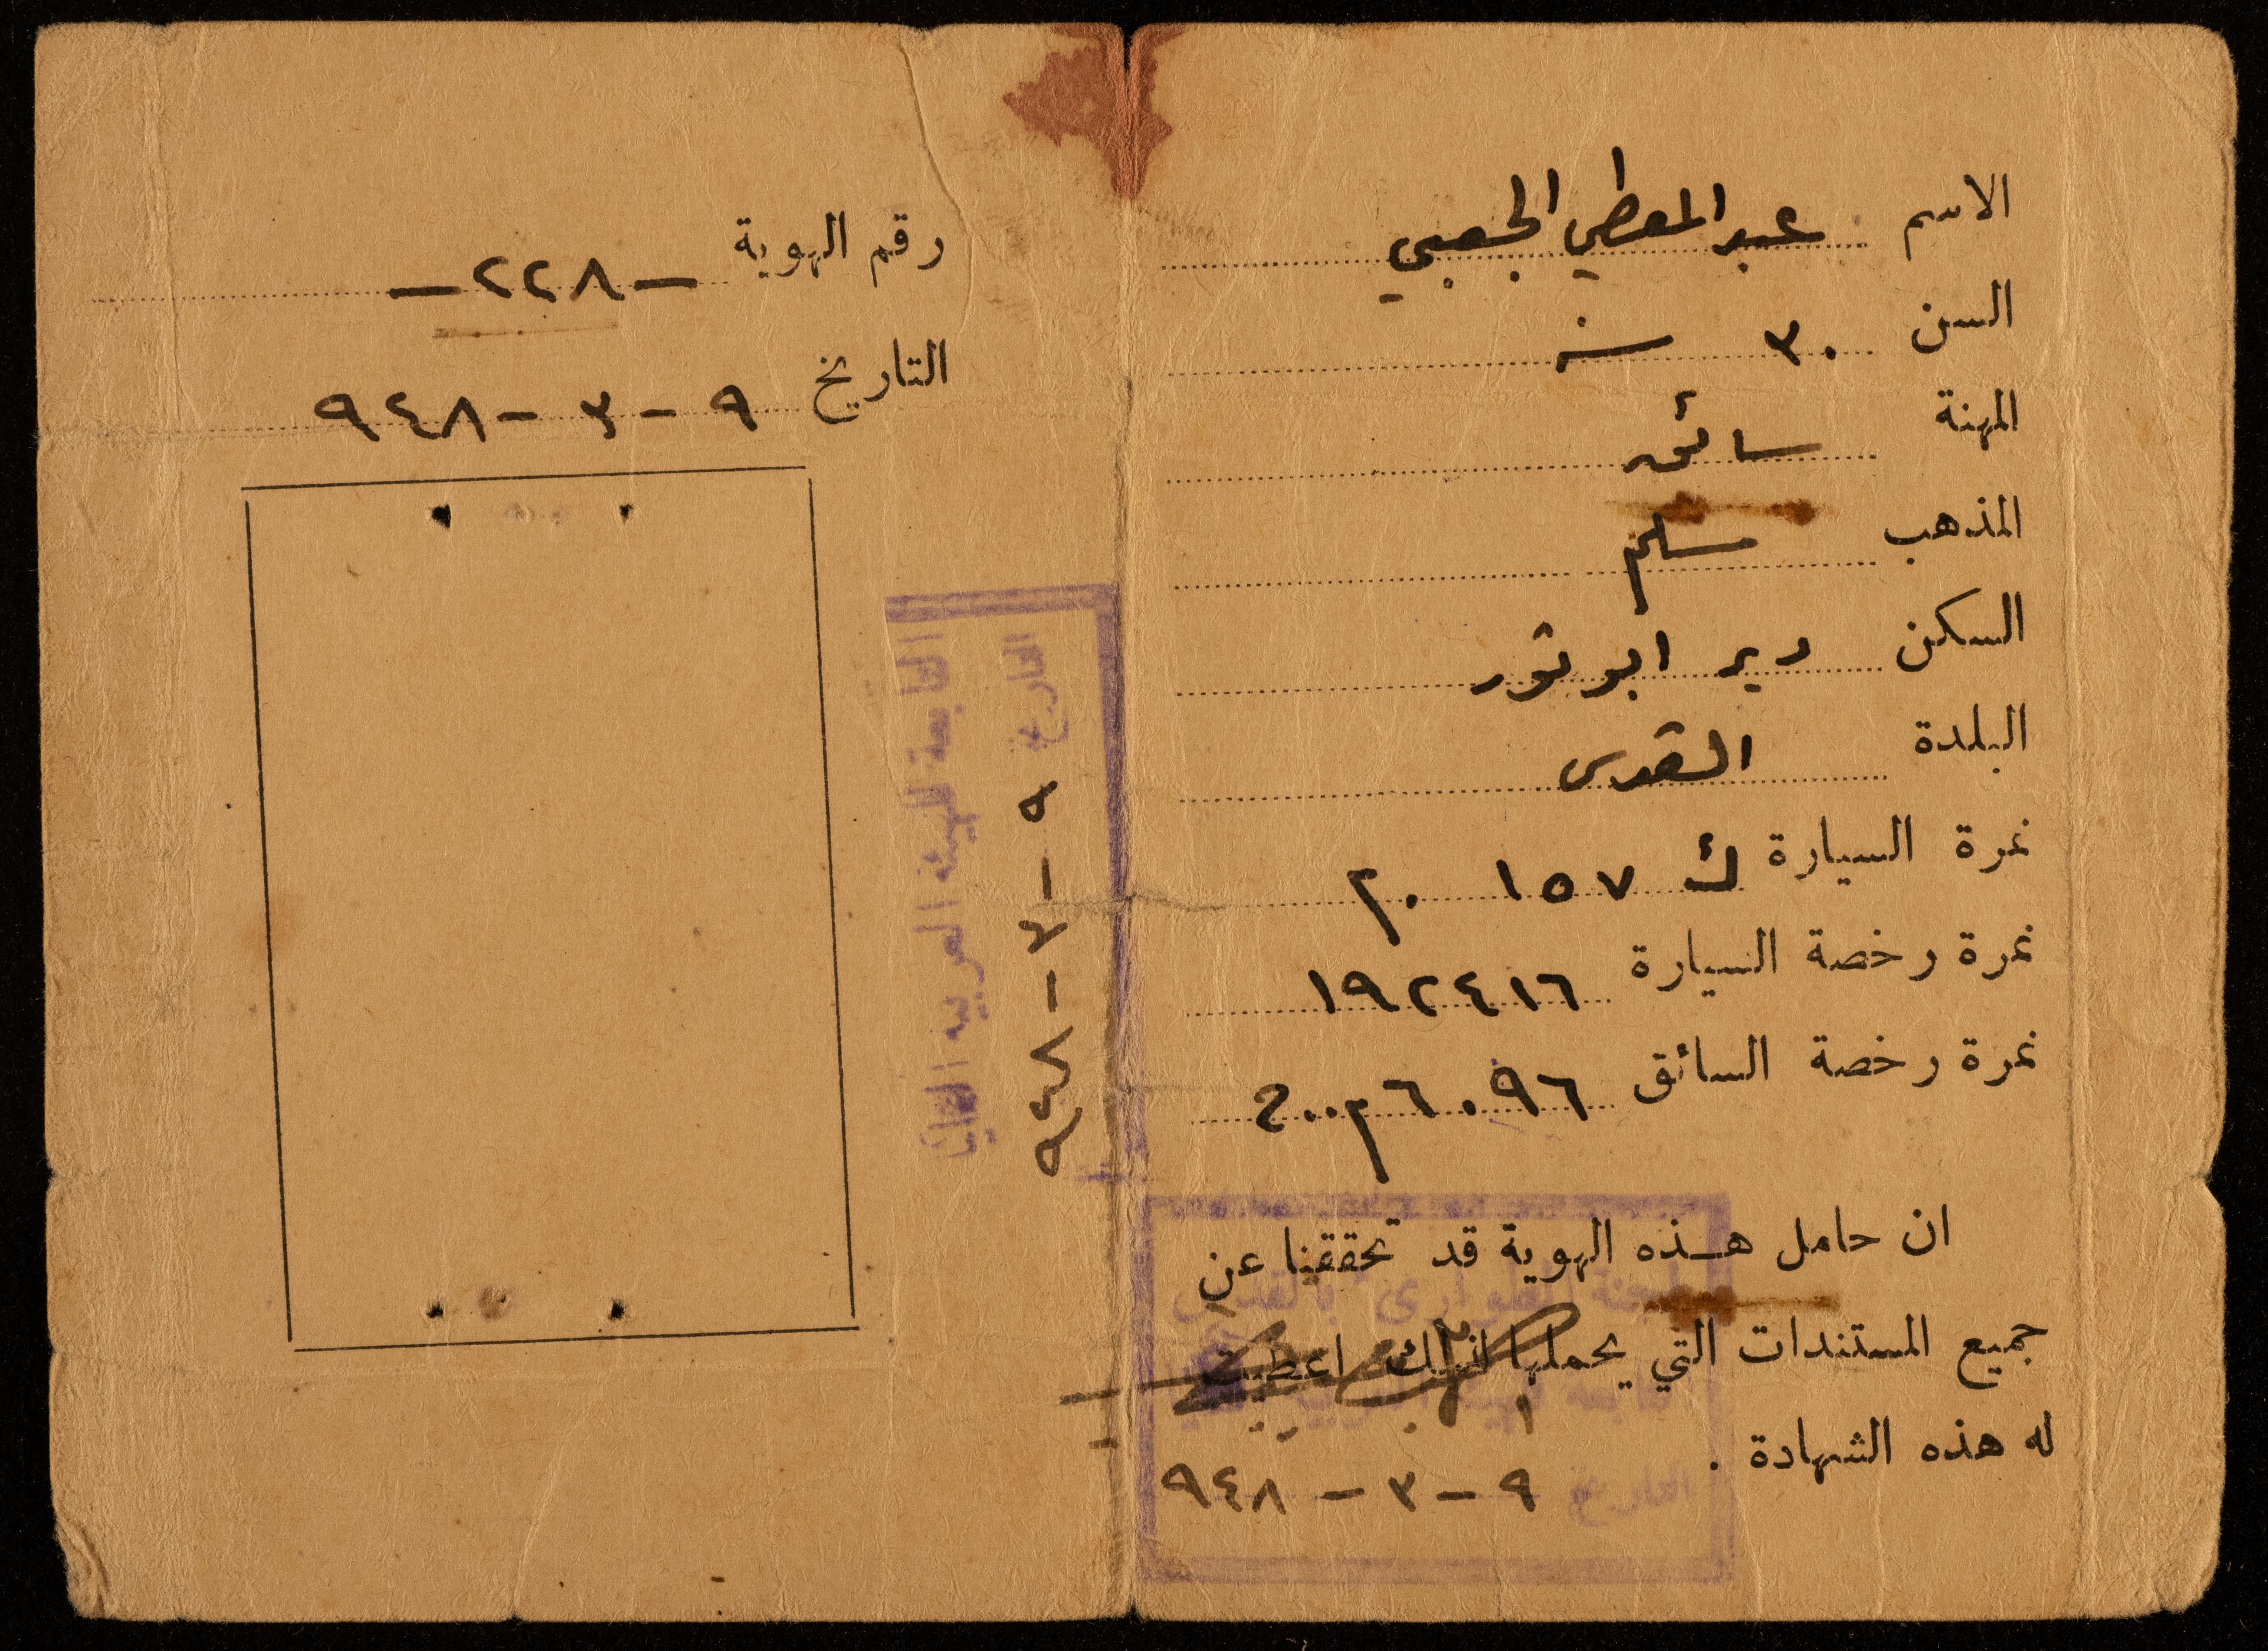 الاسم عبد المعطي الجعبي
السن ٣٠ سنة
المهنة سائق
المذهب مسلم
السكن دير ابو ثور
البلدة القدس
نمرة السيارة ك ١٥٧ م٠
نمرة رخصة السيارة ١٩٢٤١٦
نمرة رخصة السائق ٩٦ ٦٠
ان حامل هـذه الهوية قد تحققنا عن
جميع المستندات التي يحملها لذلك اعطيت
له هذه الشهادة .
لجنة الطوارئ بالقدس
التاريخ ٩ - ٣ - ٩٤٨
رقم الهوية - ٢٢٨ -
التاريخ ٩ - ٣ - ٩٤٨
التابعة للهيئة العربية العليا
التاريخ ٩ - ٣ - ٩٤٨